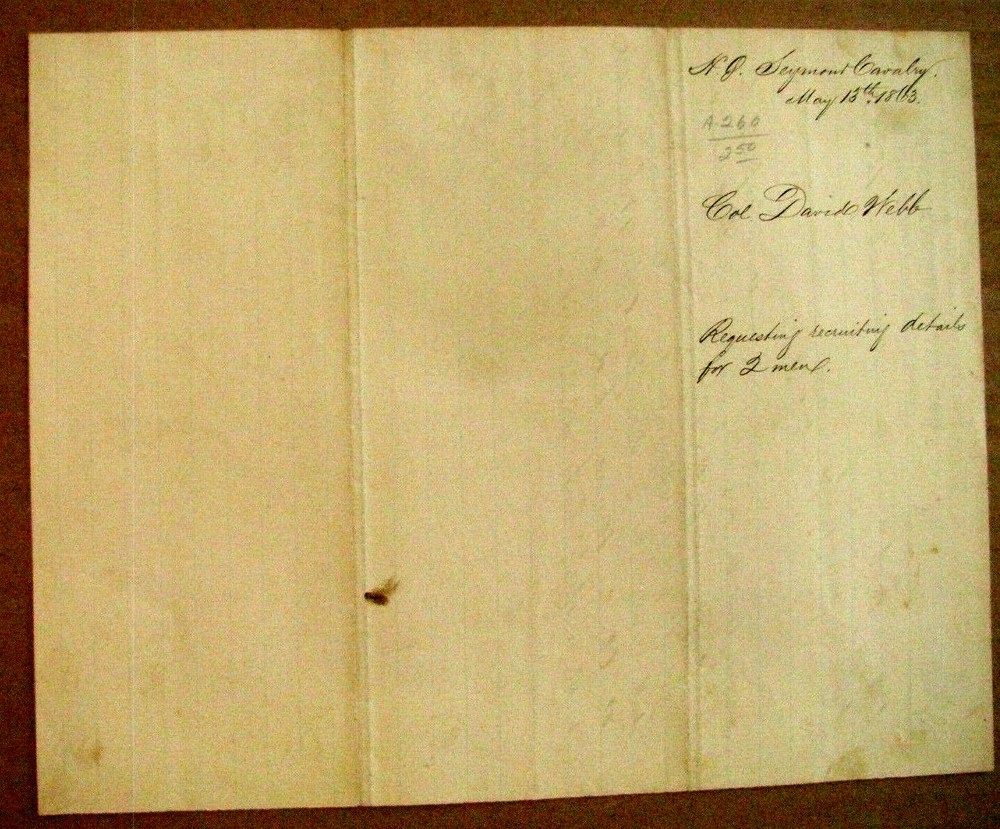 H. Q. Seymour Cavalry.
May 13th, 1863.
A-260
250
Col. David Webb
Requesting recruiting details
for 2 men.